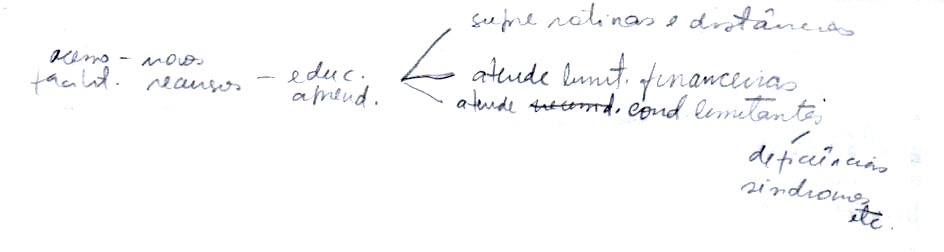 supre rotinas e distâncias
acesso - novos
facilit. recursos - educ.
aprend.
atende limit. financeiras
atende recomd. cond limitantes
deficiências
síndromes
etc.